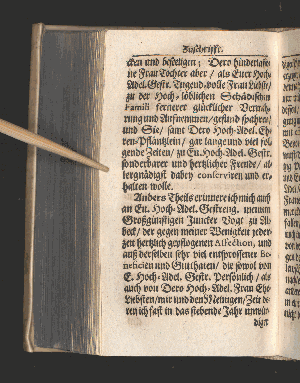 Zuschrifft.
cken und beseeligen; Dero hinterlasse-
ne Frau Tochter aber / als Euer Hoch-
Adel. Gestr. Tugend-volle Frau Liebste /
zu der Hoch-löblichen Schädischen
Famili fernerer glücklicher Vermeh-
rung und Aufnemmen / gesund spahren /
und Sie / samt Dero Hoch-Adel. Eh-
ren-Pfläntzlein / gar lange und viel fol-
gende Zeiten / zu Eu. Hoch-Adel. Gestr.
sonderbarer und hertzlicher Freude / al-
lergnädigst dabey conserviren und er-
halten wolle.
Anders Theils erinnere ich mich auch
an Eu. Hoch-Adel. Gestreng. meinem
Großgünstigen Juncker Vogt zu
der gegen meiner Wenigkeit jeder-
zeit hertzlich gepflogenen Affection, und
auß derselben sehr viel entsprossener Be-
neficien und Gutthaten / die sowol von
E. Hoch-Adel. Gestr. Persönlich / als
auch von Dero Hoch-Adel. Frau Eh-
Liebsten / mir und den Meinigen / Zeit de-
ren ich fast in das siebende Jahr unwür-
dig